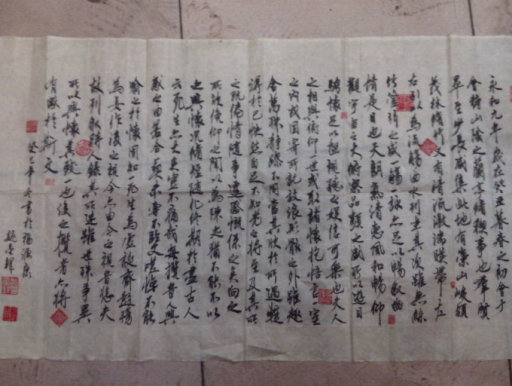 永和九年歲在癸丑暮春之初會于
會稽山陰之蘭亭脩禊事也群賢
畢至少長咸集此地有崇山峻領
茂林脩竹又有清流激湍暎帶左
右引以為流觴曲水列坐其次雖無絲
竹管弦之盛一觴一詠亦足以暢敘幽
情是日也天朗氣清惠風和暢仰
觀宇宙之大俯察品類之盛所以遊目
騁懷足以極視聽之娛信可樂也夫人
之相與俯仰一世或取諸懷抱悟言一室
之內或因寄所託放浪形骸之外雖趣
舍萬殊靜躁不同當其欣於所遇暫
得於己快然自足不知老之將至及其所
之既惓情隨事遷感慨係之矣向之
所欣俛仰之間以為陳迹猶不能不以
之興懷況脩短隨化終期於盡古人
云死生亦大矣豈不痛哉每攬昔人興
感之由若合一契未嘗不臨文嗟悼不能
喻之於懷固知一死生為虛誕齊彭殤
為妄作後之視今亦由今之視昔悲夫
故列敘時人錄其所述雖世殊事異
所以興懷其致一也後之攬者亦將
有感於斯文
癸巳年冬書於福